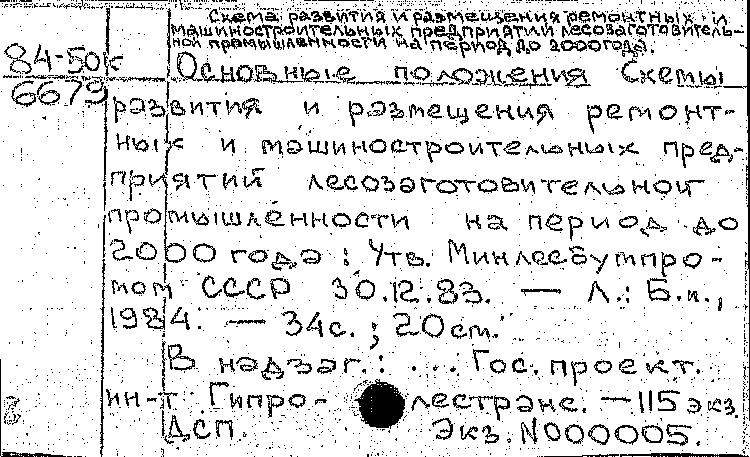 Схема развития и размещения ремонтных и
машиностроительных предприятий лесозаготовитель-
ной промышленности на период до 2000 года.
84-50к
6679
Основные положения Схемы
развития и размещения ремонт-
ных и машиностроительных пред-
приятий лесозаготовительной
промышленности на период до
2000 года : Утв. Минлесбумпро-
мом СССР 30.12.83. — Л.: Б.и.,
1984. — 34с. ; 20см.
В надзаг.: ... Гос. проект.
ин-т Гипролестранс. — 115 экз.
ДСП. Экз. N000005.